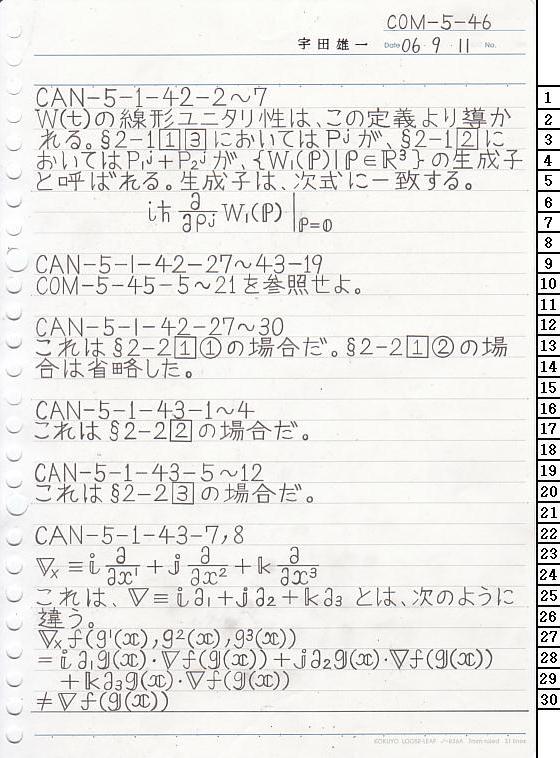 COM-5-46
宇田雄一 Date 06 9 11 No.
CAN-5-1-42-2～7
W(t)の線形ユニタリ性は、この定義より導か
れる。§2-1[1][3]においてはPʲが、§2-1[2]に
おいてはP₁ʲ+P₂ʲが、{W₁(ℙ)|ℙ∈ℝ³}の生成子
と呼ばれる。生成子は、次式に一致する。
iħ ∂/∂ρʲ W₁(ℙ)|ℙ=𝟘
CAN-5-1-42-27～43-19
COM-5-45-5～21を参照せよ。
CAN-5-1-42-27～30
これは§2-2[1]①の場合だ。§2-2[1]②の場
合は省略した。
CAN-5-1-43-1～4
これは§2-2[2]の場合だ。
CAN-5-1-43-5～12
これは§2-2[3]の場合だ。
CAN-5-1-43-7,8
∇ₓ≡𝕚 ∂/∂x¹ + 𝕛 ∂/∂x² + 𝕜 ∂/∂x³
これは、∇≡𝕚∂₁+𝕛∂₂+𝕜∂₃とは、次のように
違う。
∇ₓf(g¹(𝕩),g²(𝕩),g³(𝕩))
=𝕚∂₁𝕘(𝕩)·∇f(𝕘(𝕩))+𝕛∂₂𝕘(𝕩)·∇f(𝕘(𝕩))
+𝕜∂₃𝕘(𝕩)·∇f(𝕘(𝕩))
≠∇f(𝕘(𝕩))
KOKUYO LOOSE-LEAF ノ-836A 7mm ruled 31 lines
1
2
3
4
5
6
7
8
9
10
11
12
13
14
15
16
17
18
19
20
21
22
23
24
25
26
27
28
29
30